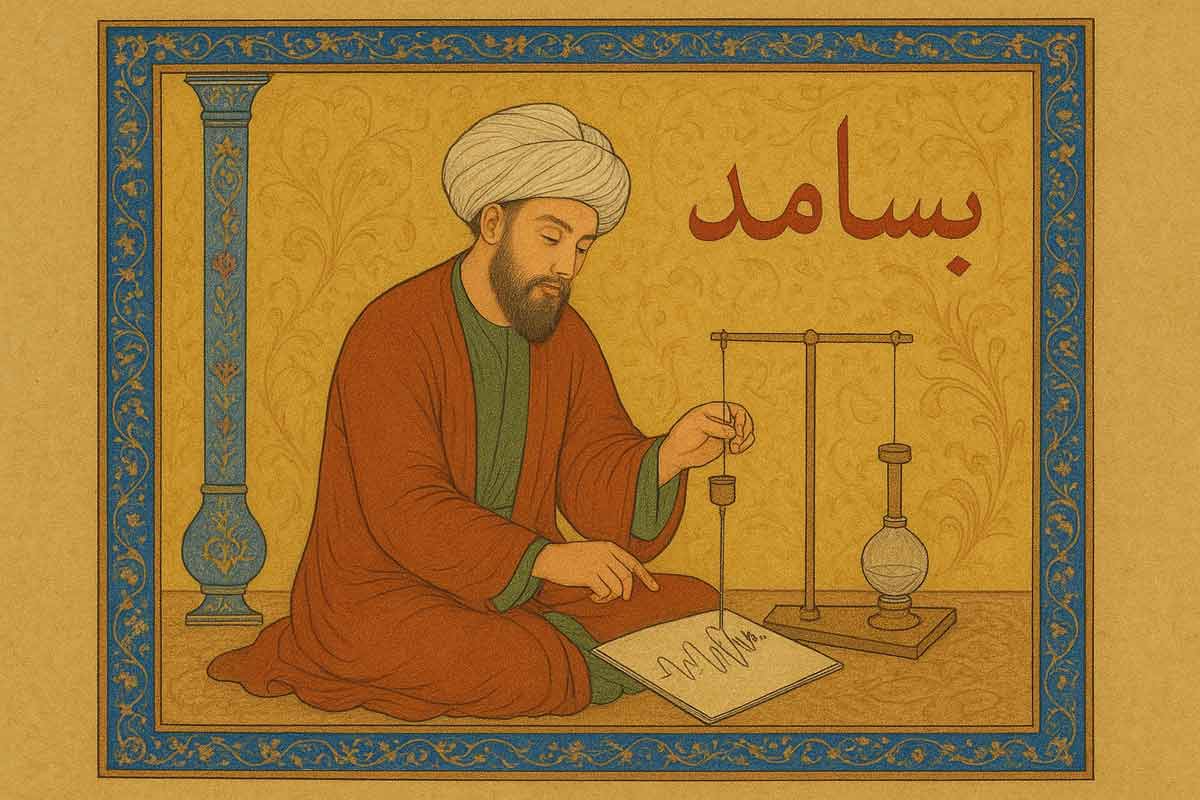 بسامد